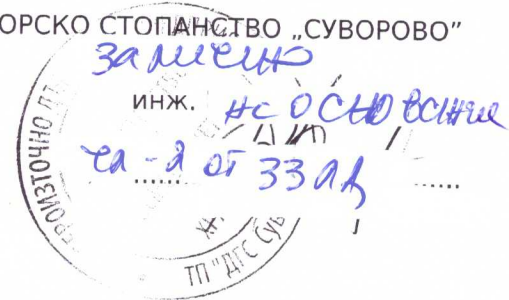 ОРСКО СТОПАНСТВО „СУВОРОВО”
заличено
инж. на основание
чл-2 от ЗЗЛД
ТП "ДГС Сув